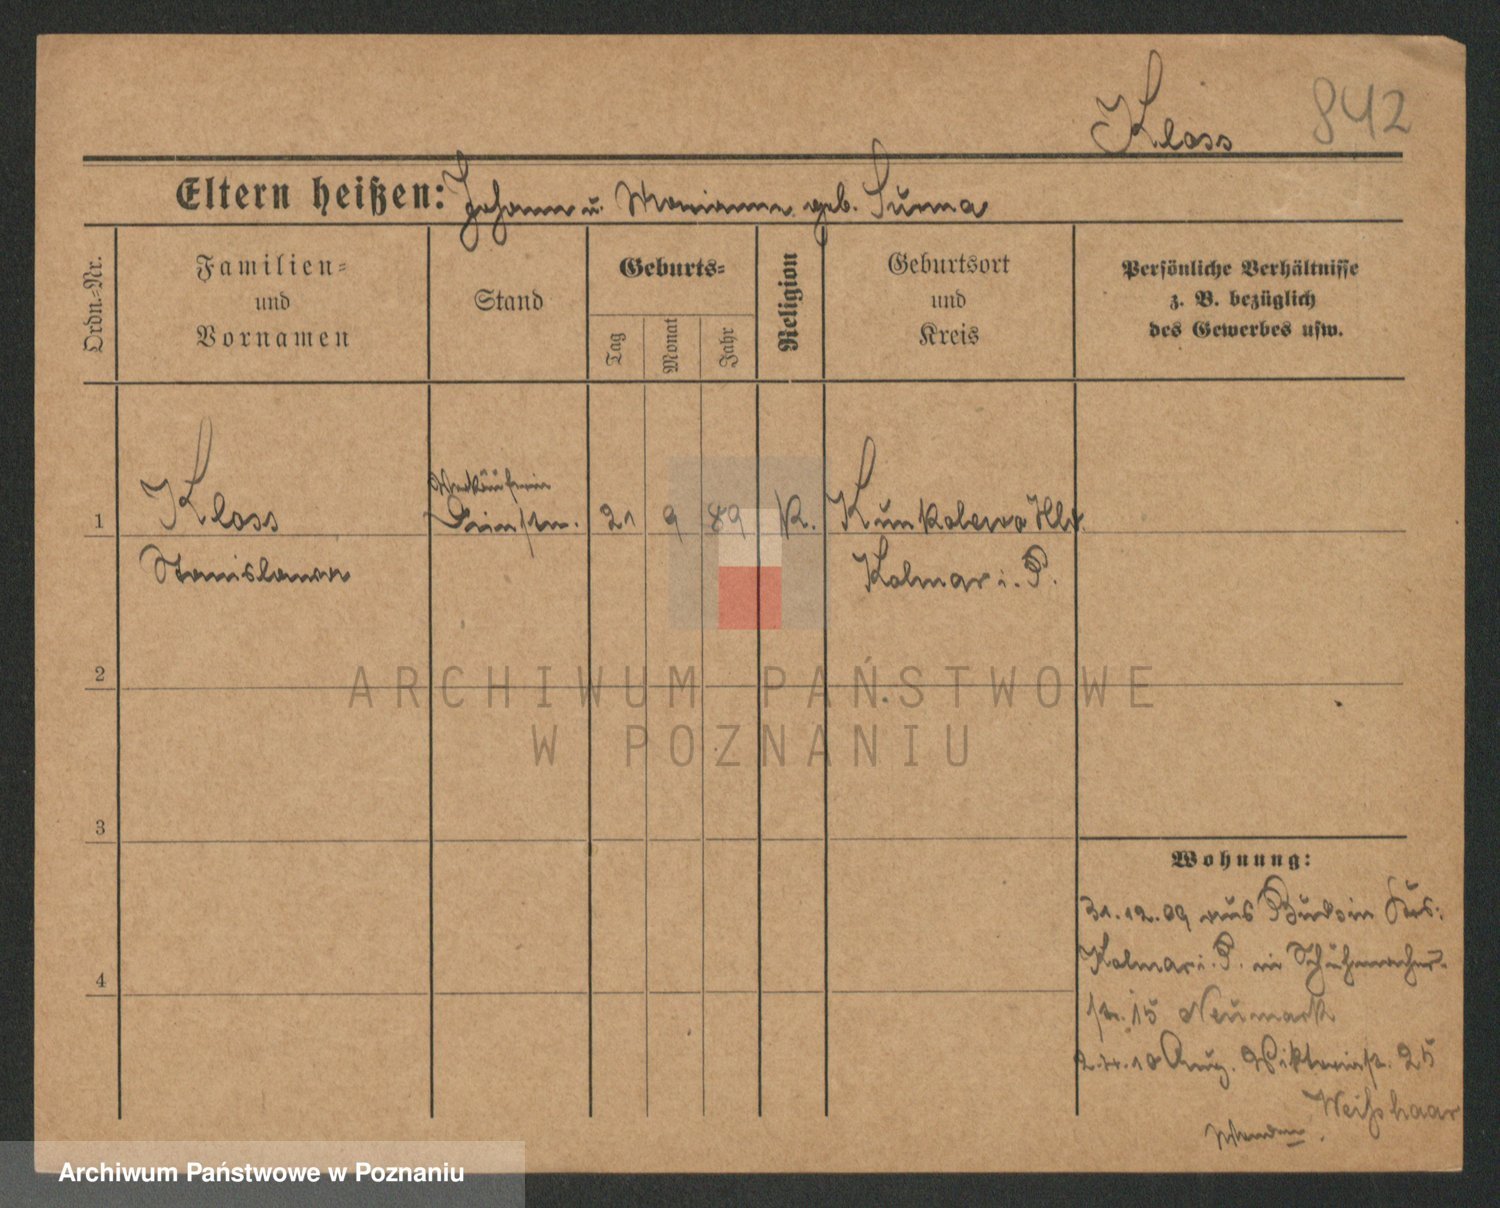 Kloss 842
Eltern heißen: Johann u. Marianna geb. Suma
Ordn.-Nr.
Familien-
und
Vornamen
Stand
Geburts-
Tag
Monat
Jahr
Religion
Geburtsort
und
Kreis
Persönliche Verhältnisse
z. B. bezüglich
des Gewerbes usw.
Verkäuferin
1 Kloss 21 9 89 K. Kunkolewo
Stanislawa Kolmar i. P.
2
3
4
Wohnung:
31.12.09 aus Budsin Krs:
Kolmar i. P. in Schuhmacher-
str. 15 Neumark
2.4.10 Viktoriastr. 25
Weißhaar
ARCHIWUM PAŃSTWOWE
W POZNANIU
Archiwum Państwowe w Poznaniu